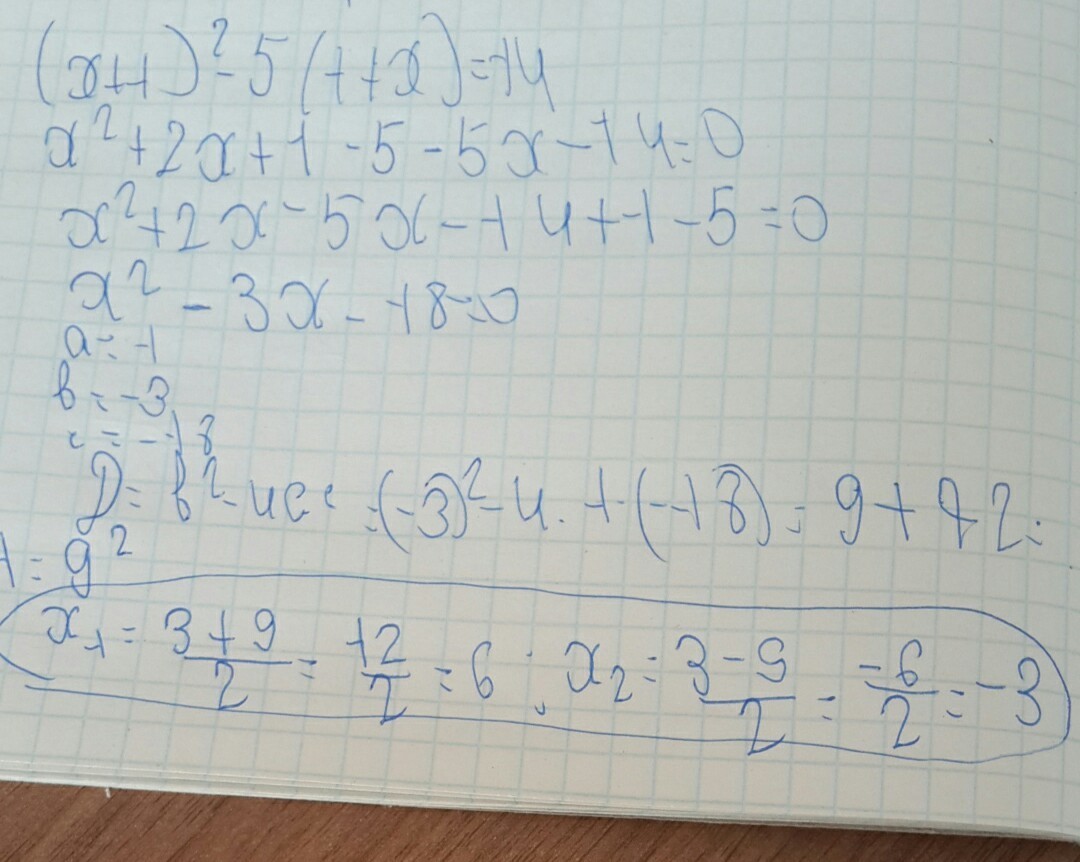 (x+1)²-5(1+x)=14
x²+2x+1-5-5x-14=0
x²+2x-5x-14+1-5=0
x²-3x-18=0
a=1
b=-3
c=-18
D=b²-4ac=(-3)²-4·1·(-18)=9+72=
=9²
x₁=3+9/2=12/2=6; x₂=3-9/2=-6/2=-3